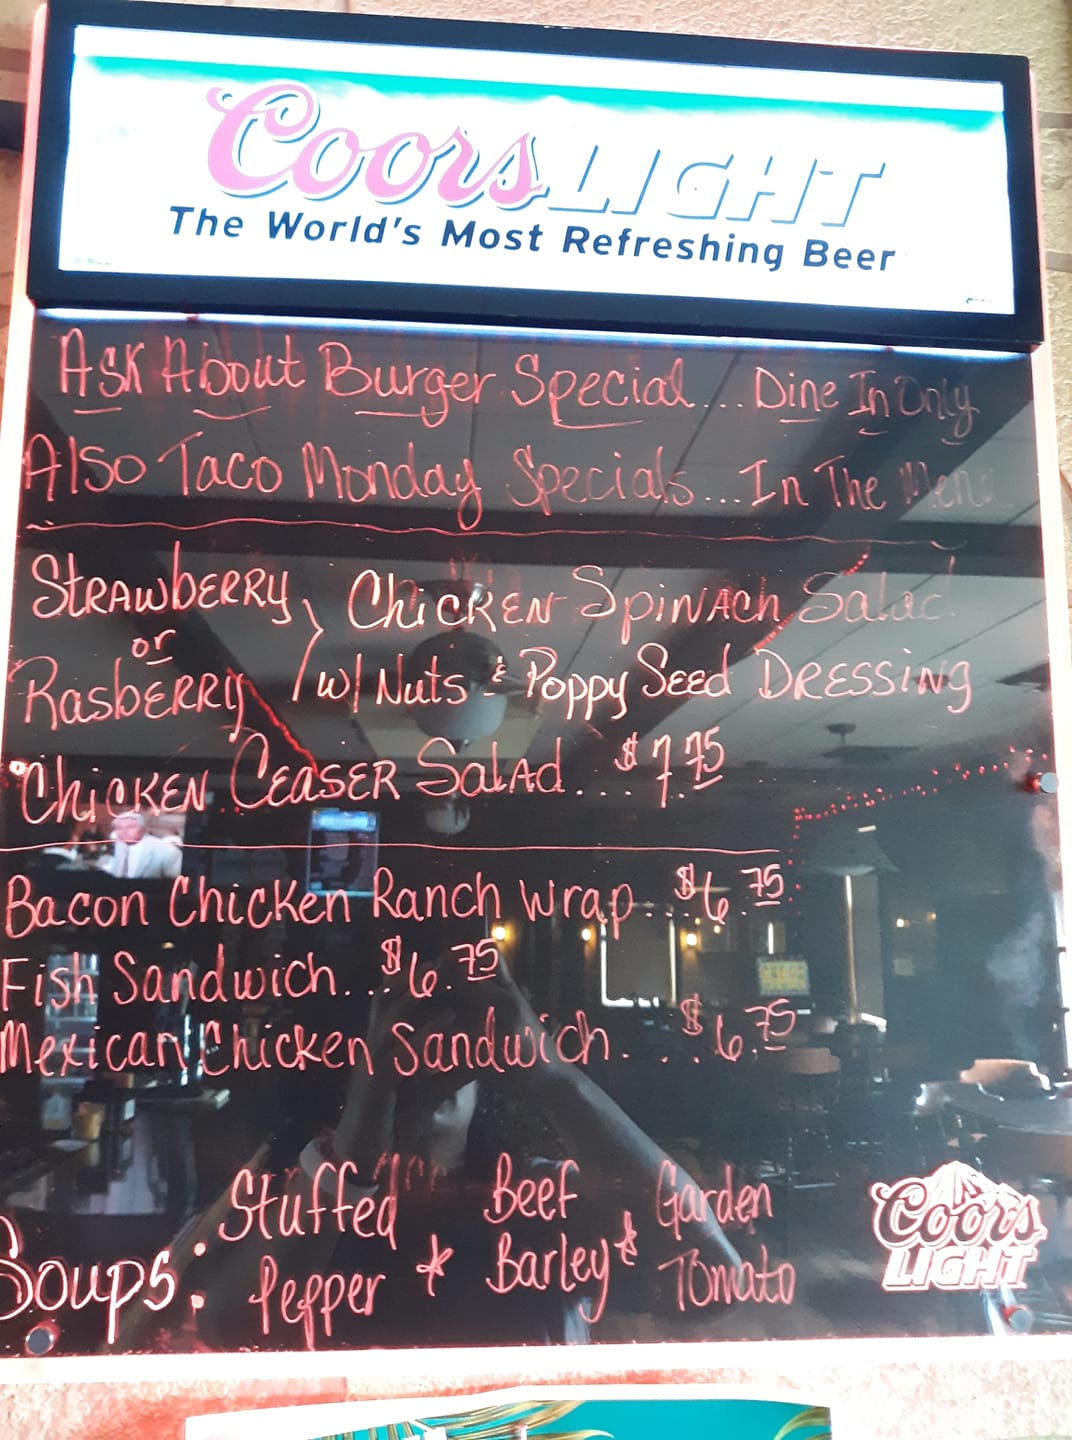 Coors LIGHT
The World's Most Refreshing Beer
Ask About Burger Special... Dine In Only
Also Taco Monday Specials... In The Menu
Strawberry Chicken Spinach Salad
or
Rasberry w/ Nuts & Poppy Seed Dressing
Chicken Ceaser Salad... $7.75
Bacon Chicken Ranch Wrap... $6.75
Fish Sandwich... $6.75
Mexican Chicken Sandwich... $6.75
Soups: Stuffed Pepper * Beef Barley * Garden Tomato
Coors
LIGHT